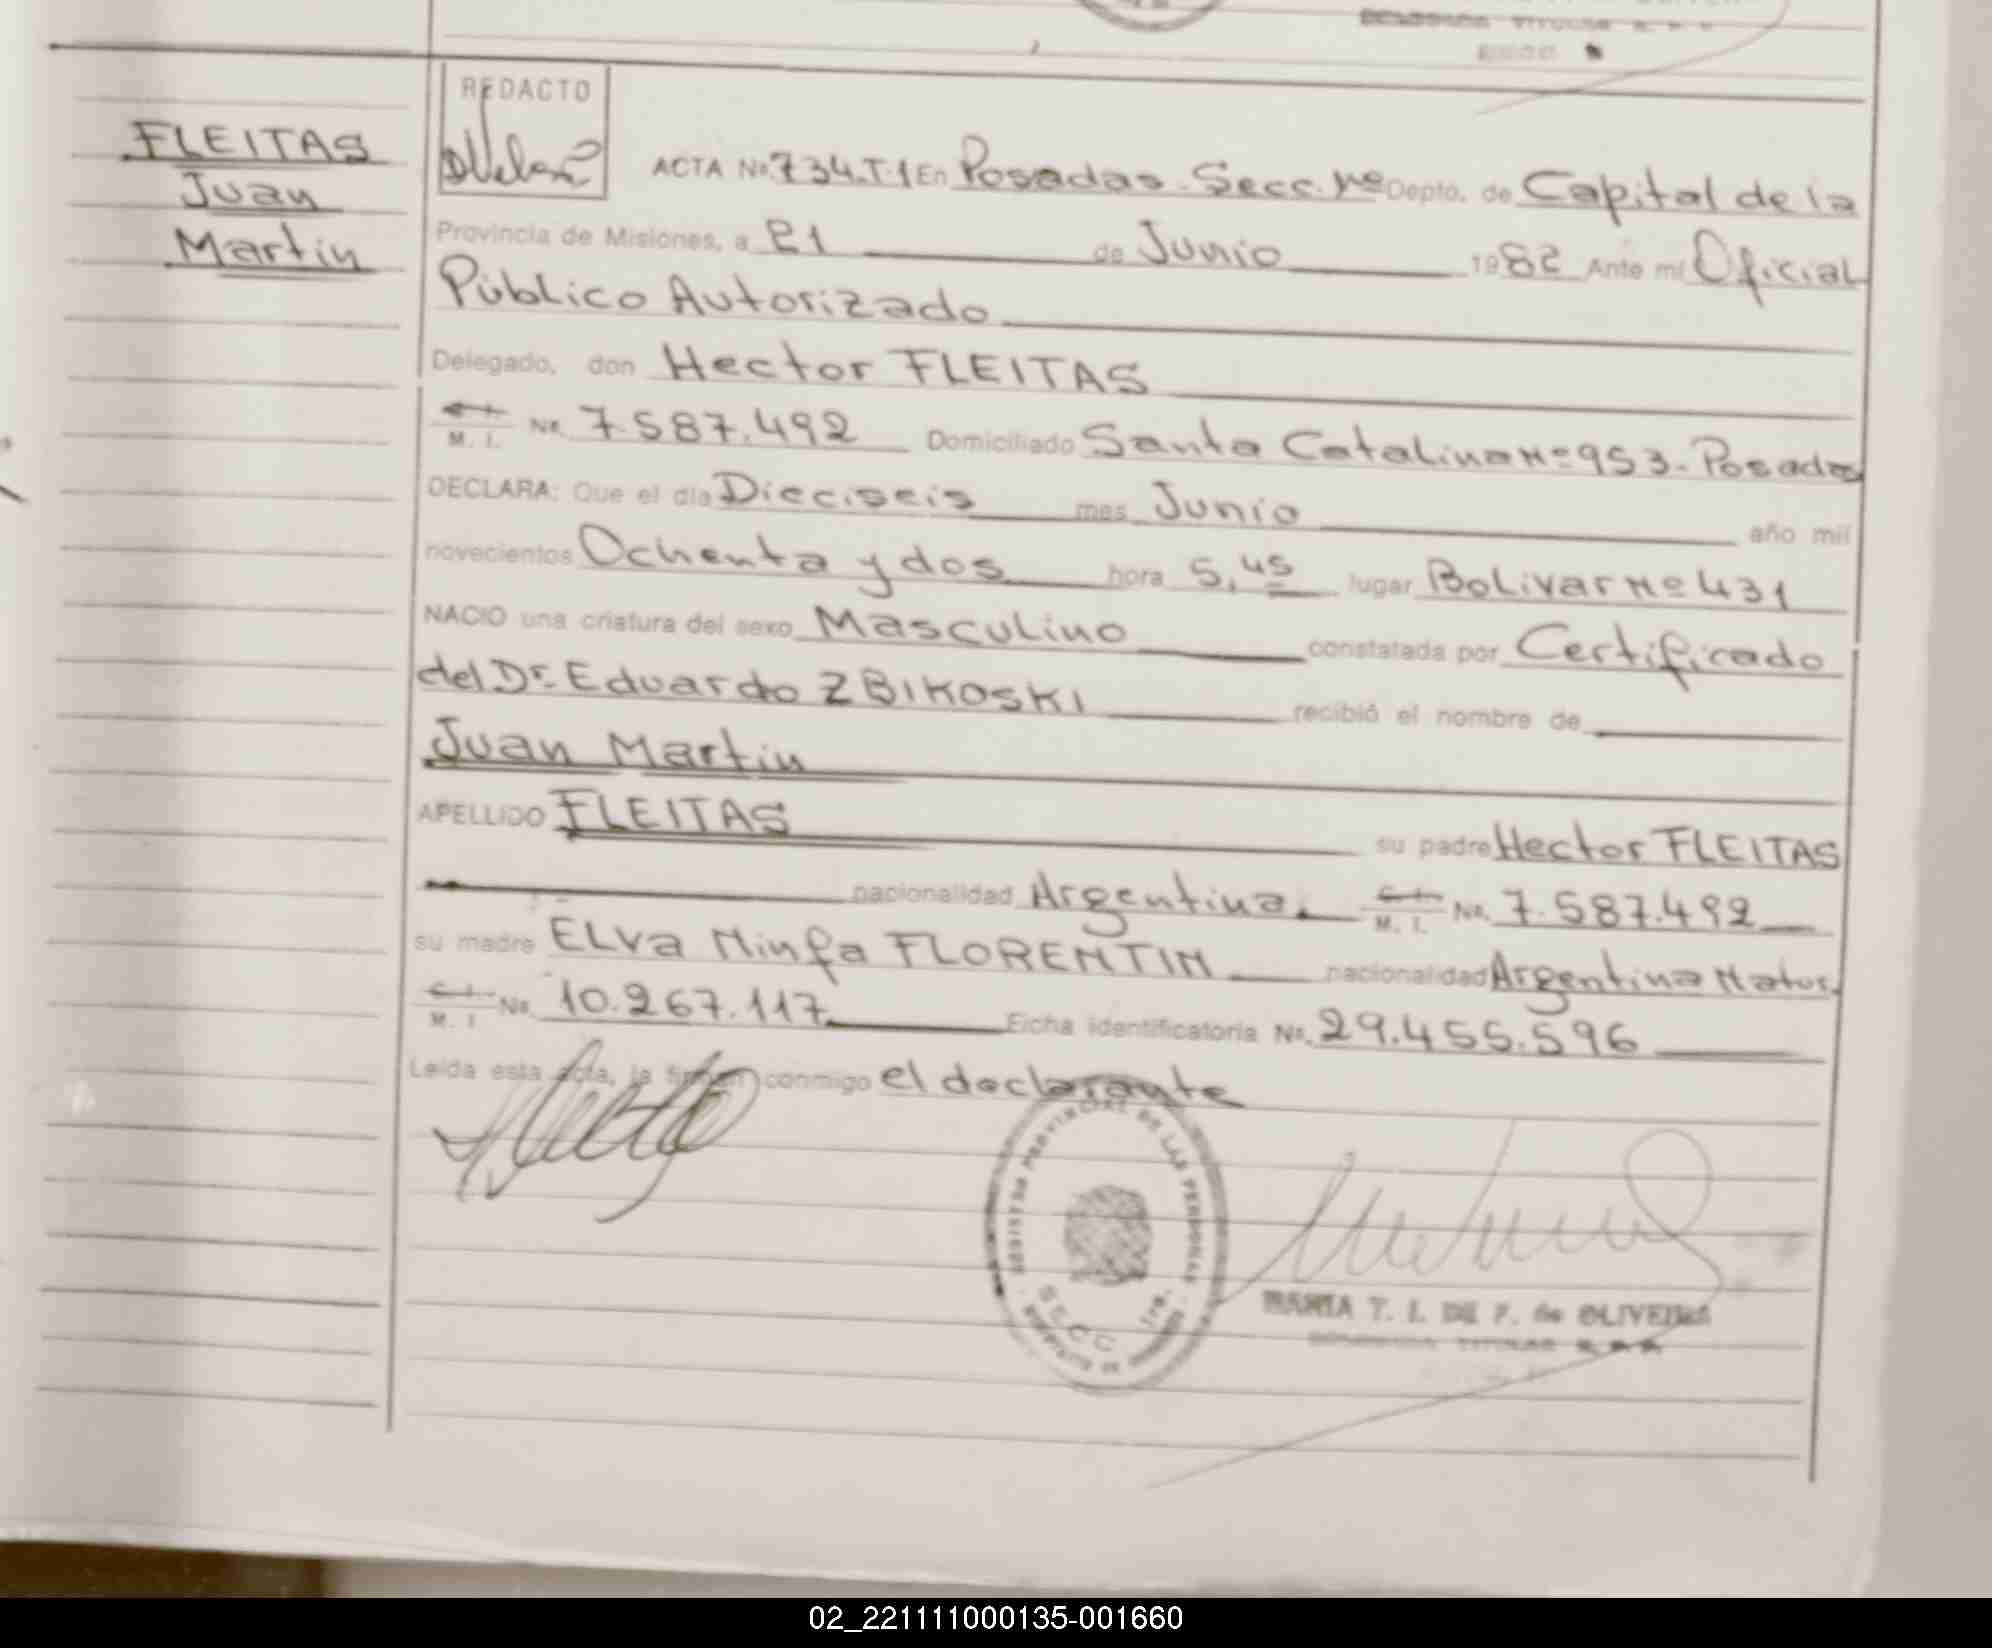 FLEITAS
Juan
Martin
REDACTO
ACTA No. 734.T.1 En Posadas. Secc. 1ra Depto. de Capital de la
Provincia de Misiones, a 21 de Junio 1982 Ante mí Oficial
Público Autorizado
Delegado, don Hector FLEITAS
C.I. M. I. No. 7.587.492 Domiciliado Santa Catalina Nº 953. Posadas
DECLARA: Que el día Dieciseis mes Junio año mil
novecientos Ochenta y dos hora 5,45 lugar Bolivar Nº 431
NACIO una criatura del sexo Masculino constatada por Certificado
del Dr. Eduardo ZBIKOSKI recibió el nombre de
Juan Martin
APELLIDO FLEITAS su padre Hector FLEITAS
nacionalidad Argentina. C.I. M. I. No. 7.587.492
su madre ELva Ninfa FLORENTIN nacionalidad Argentina Natur.
C.I. M. I No. 10.267.117 Ficha identificatoria No. 29.455.596
Leída esta acta, la firman conmigo el declarante
REGISTRO PROVINCIAL DE LAS PERSONAS
SECC 1ra.
MARIA T. I. DE F. de OLIVEIRA
02_221111000135-001660